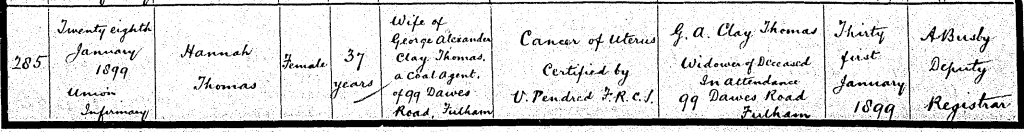 285
Twenty eighth
January
1899
Union
Infirmary
Hannah
Thomas
Female
37
years
Wife of
George Alexander
Clay Thomas,
a Coal Agent,
of 99 Dawes
Road, Fulham
Cancer of Uterus
Certified by
V. Pendred F.R.C.S.
G. A. Clay Thomas
Widower of Deceased
In Attendance
99 Dawes Road
Fulham
Thirty
first
January
1899
A Busby
Deputy
Registrar